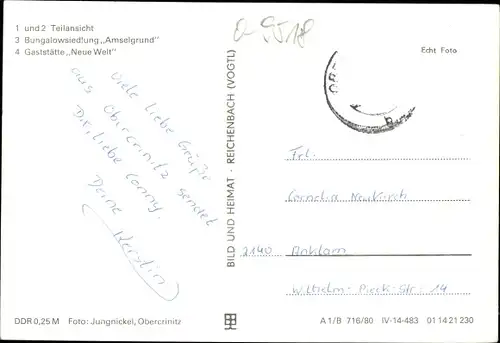 1 und 2 Teilansicht
3 Bungalowsiedlung „Amselgrund"
4 Gaststätte „Neue Welt"
Echt Foto
Viele liebe Grüße
aus Obercrinitz sendet
Dir, liebe Conny,
Deine Kerstin
BILD UND HEIMAT · REICHENBACH (VOGTL)
Frl.
Cornelia Neukirch
2140 Anklam
Wilhelm-Pieck-Str. 14
DDR 0,25 M Foto: Jungnickel, Obercrinitz
A 1/B 716/80 IV-14-483 01 14 21 230